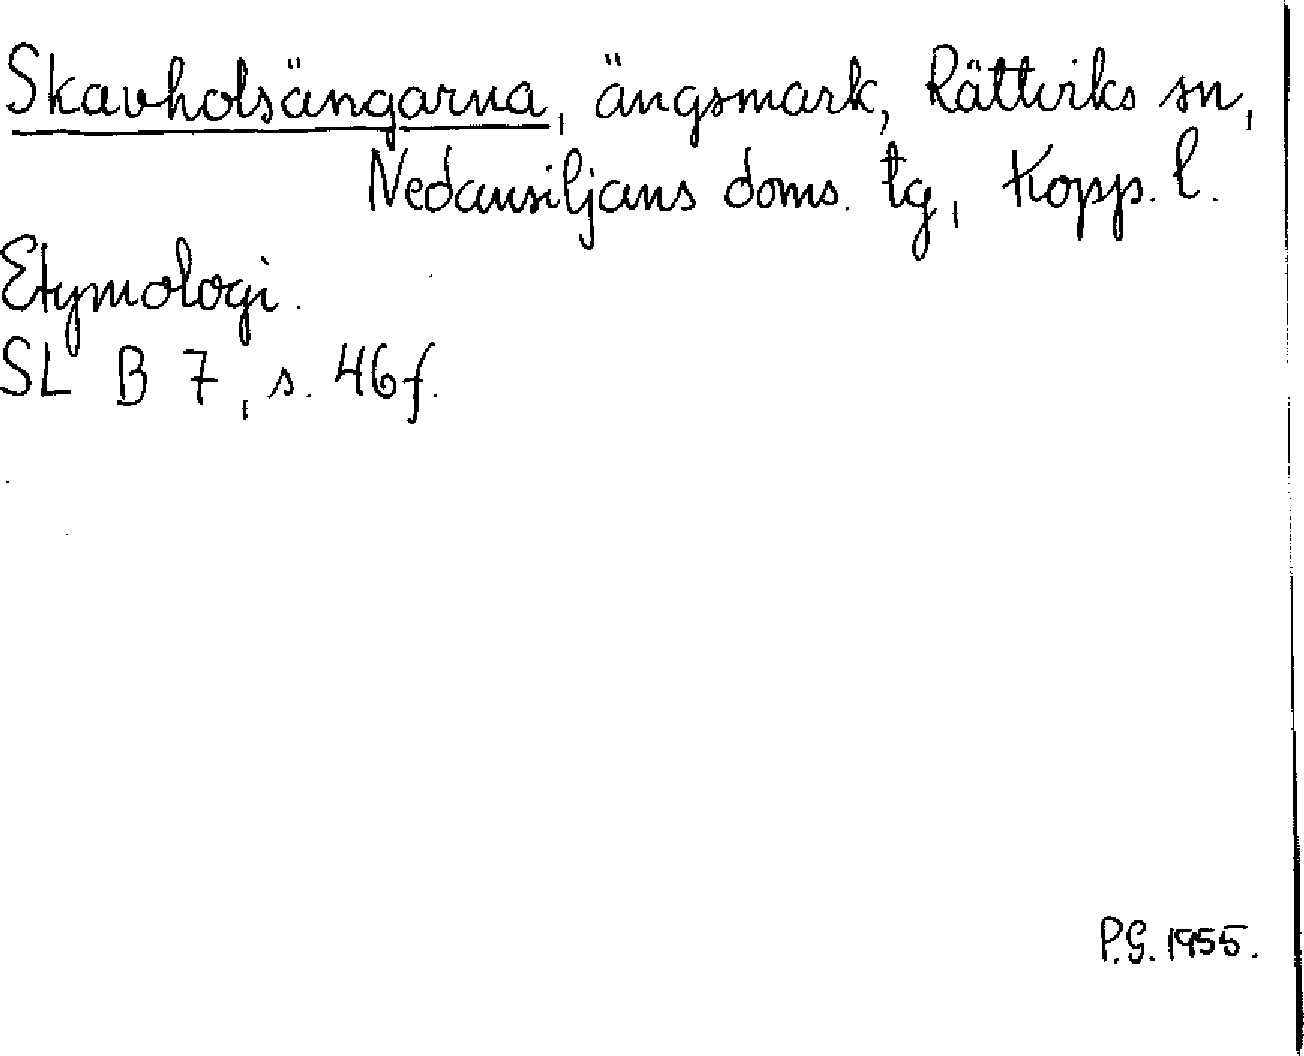 Skavholsängarna, ängsmark, Rättviks sn,
Nedansiljans doms. tg, Kopp. l.
Etymologi.
SL B 7, s. 46f.
P.G. 1955.